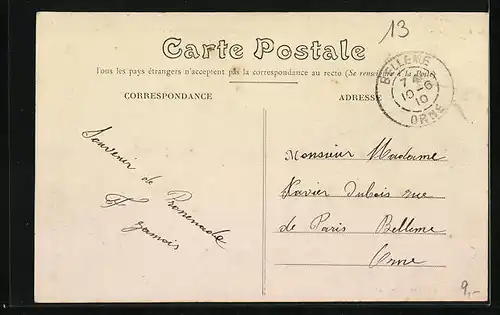 13
Carte Postale
Tous les pays étrangers n'acceptent pas la correspondance au recto (Se renseigner à la Poste)
CORRESPONDANCE
ADRESSE
BELLEME
7
10-6
10
ORNE
Souvenir
de Promenade
Monsieur Madame
Xavier Dubois rue
de Paris Belleme
Orne
9,-